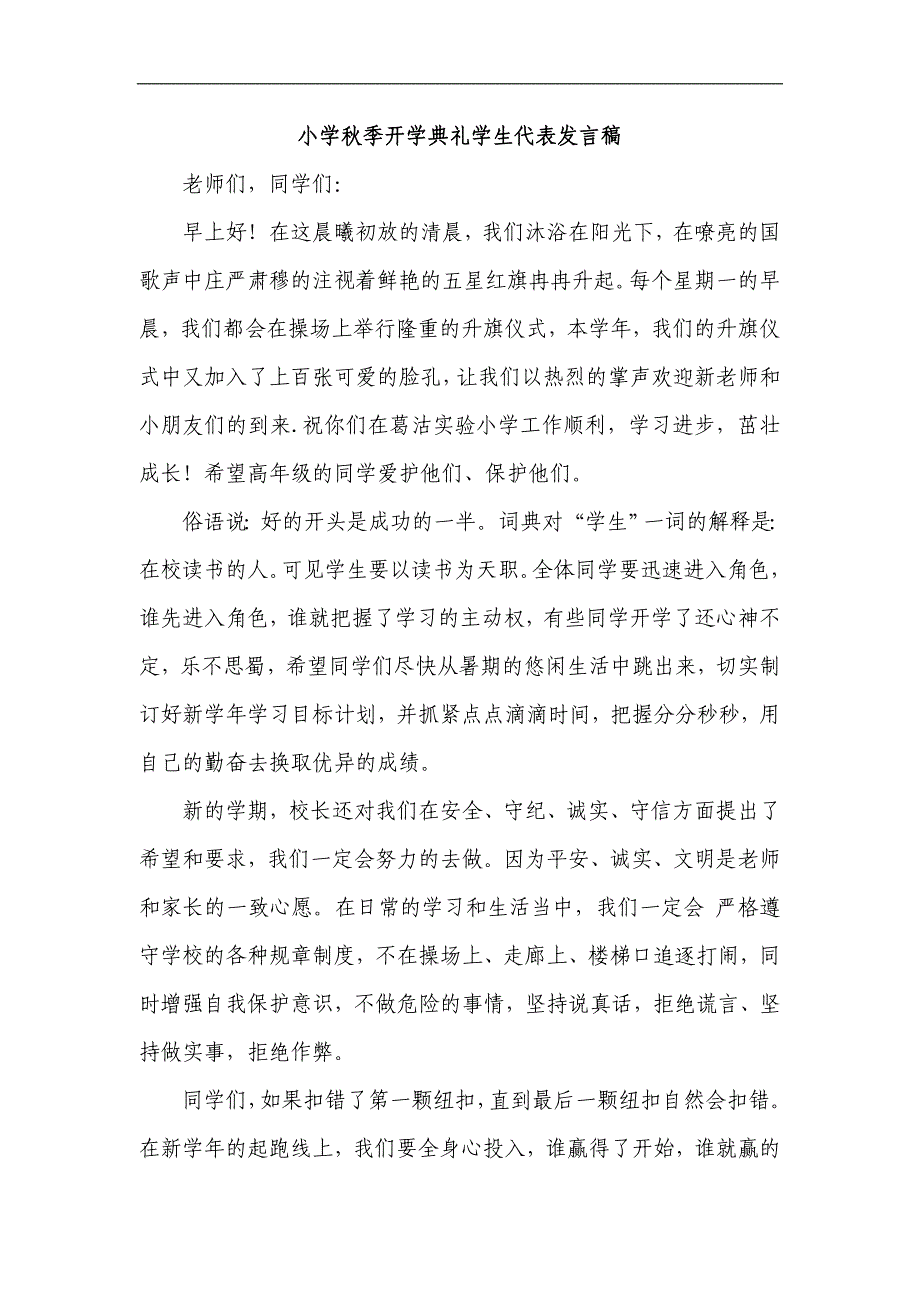 小学秋季开学典礼学生代表发言稿
老师们，同学们：
早上好！在这晨曦初放的清晨，我们沐浴在阳光下，在嘹亮的国
歌声中庄严肃穆的注视着鲜艳的五星红旗冉冉升起。每个星期一的早
晨，我们都会在操场上举行隆重的升旗仪式，本学年，我们的升旗仪
式中又加入了上百张可爱的脸孔，让我们以热烈的掌声欢迎新老师和
小朋友们的到来.祝你们在葛沽实验小学工作顺利，学习进步，茁壮
成长！希望高年级的同学爱护他们、保护他们。
俗语说：好的开头是成功的一半。词典对“学生”一词的解释是：
在校读书的人。可见学生要以读书为天职。全体同学要迅速进入角色，
谁先进入角色，谁就把握了学习的主动权，有些同学开学了还心神不
定，乐不思蜀，希望同学们尽快从暑期的悠闲生活中跳出来，切实制
订好新学年学习目标计划，并抓紧点点滴滴时间，把握分分秒秒，用
自己的勤奋去换取优异的成绩。
新的学期，校长还对我们在安全、守纪、诚实、守信方面提出了
希望和要求，我们一定会努力的去做。因为平安、诚实、文明是老师
和家长的一致心愿。在日常的学习和生活当中，我们一定会 严格遵
守学校的各种规章制度，不在操场上、走廊上、楼梯口追逐打闹，同
时增强自我保护意识，不做危险的事情，坚持说真话，拒绝谎言、坚
持做实事，拒绝作弊。
同学们，如果扣错了第一颗纽扣，直到最后一颗纽扣自然会扣错。
在新学年的起跑线上，我们要全身心投入，谁赢得了开始，谁就赢的